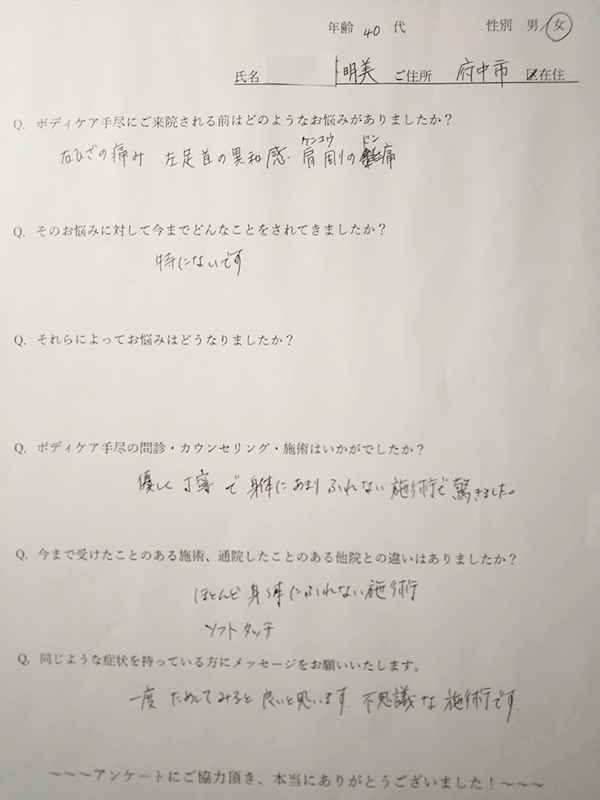 年齢 40 代 性別 男/女
氏名 明美 ご住所 府中市 区在住
Q. ボディケア手尽にご来院される前はどのようなお悩みがありましたか？
ケンコウ ドン
右ひざの痛み 左足首の異和感・肩周りの痛
Q. そのお悩みに対して今までどんなことをされてきましたか？
特にないです
Q. それらによってお悩みはどうなりましたか？
Q. ボディケア手尽の問診・カウンセリング・施術はいかがでしたか？
優しく丁寧で身体にあまりふれない施術で驚きました。
Q. 今まで受けたことのある施術、通院したことのある他院との違いはありましたか？
ほとんど身体にふれない施術
ソフトタッチ
Q. 同じような症状を持っている方にメッセージをお願いいたします。
一度ためしてみると良いと思います。不思議な施術です。
～～～アンケートにご協力頂き、本当にありがとうございました！～～～